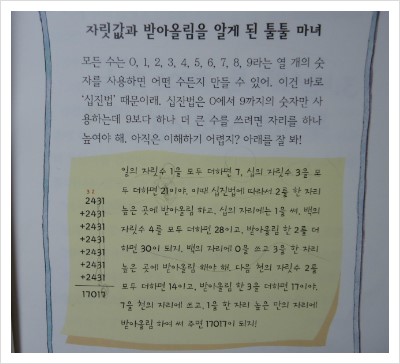 자릿값과 받아올림을 알게 된 툴툴 마녀
모든 수는 0, 1, 2, 3, 4, 5, 6, 7, 8, 9라는 열 개의 숫
자를 사용하면 어떤 수든지 만들 수 있어. 이건 바로
'십진법' 때문이래. 십진법은 0에서 9까지의 숫자만 사
용하는데 9보다 하나 더 큰 수를 쓰려면 자리를 하나
높여야 해. 아직은 이해하기 어렵지? 아래를 잘 봐!
일의 자릿수 1을 모두 더하면 7, 십의 자릿수 3을 모
두 더하면 21이야. 이때 십진법에 따라서 2를 한 자리
높은 곳에 받아올림 하고, 십의 자리에는 1을 써. 백의
자릿수 4를 모두 더하면 28이고, 받아올림 한 2를 더
하면 30이 되지. 백의 자리에 0을 쓰고 3을 한 자리
높은 곳에 받아올림 해야 해. 다음 천의 자릿수 2를
모두 더하면 14이고, 받아올림 한 3을 더하면 17이야.
7을 천의 자리에 쓰고, 1을 한 자리 높은 만의 자리에
받아올림 하여 써 주면 17017이 되지!
3 2
2431
+2431
+2431
+2431
+2431
+2431
+2431
17017